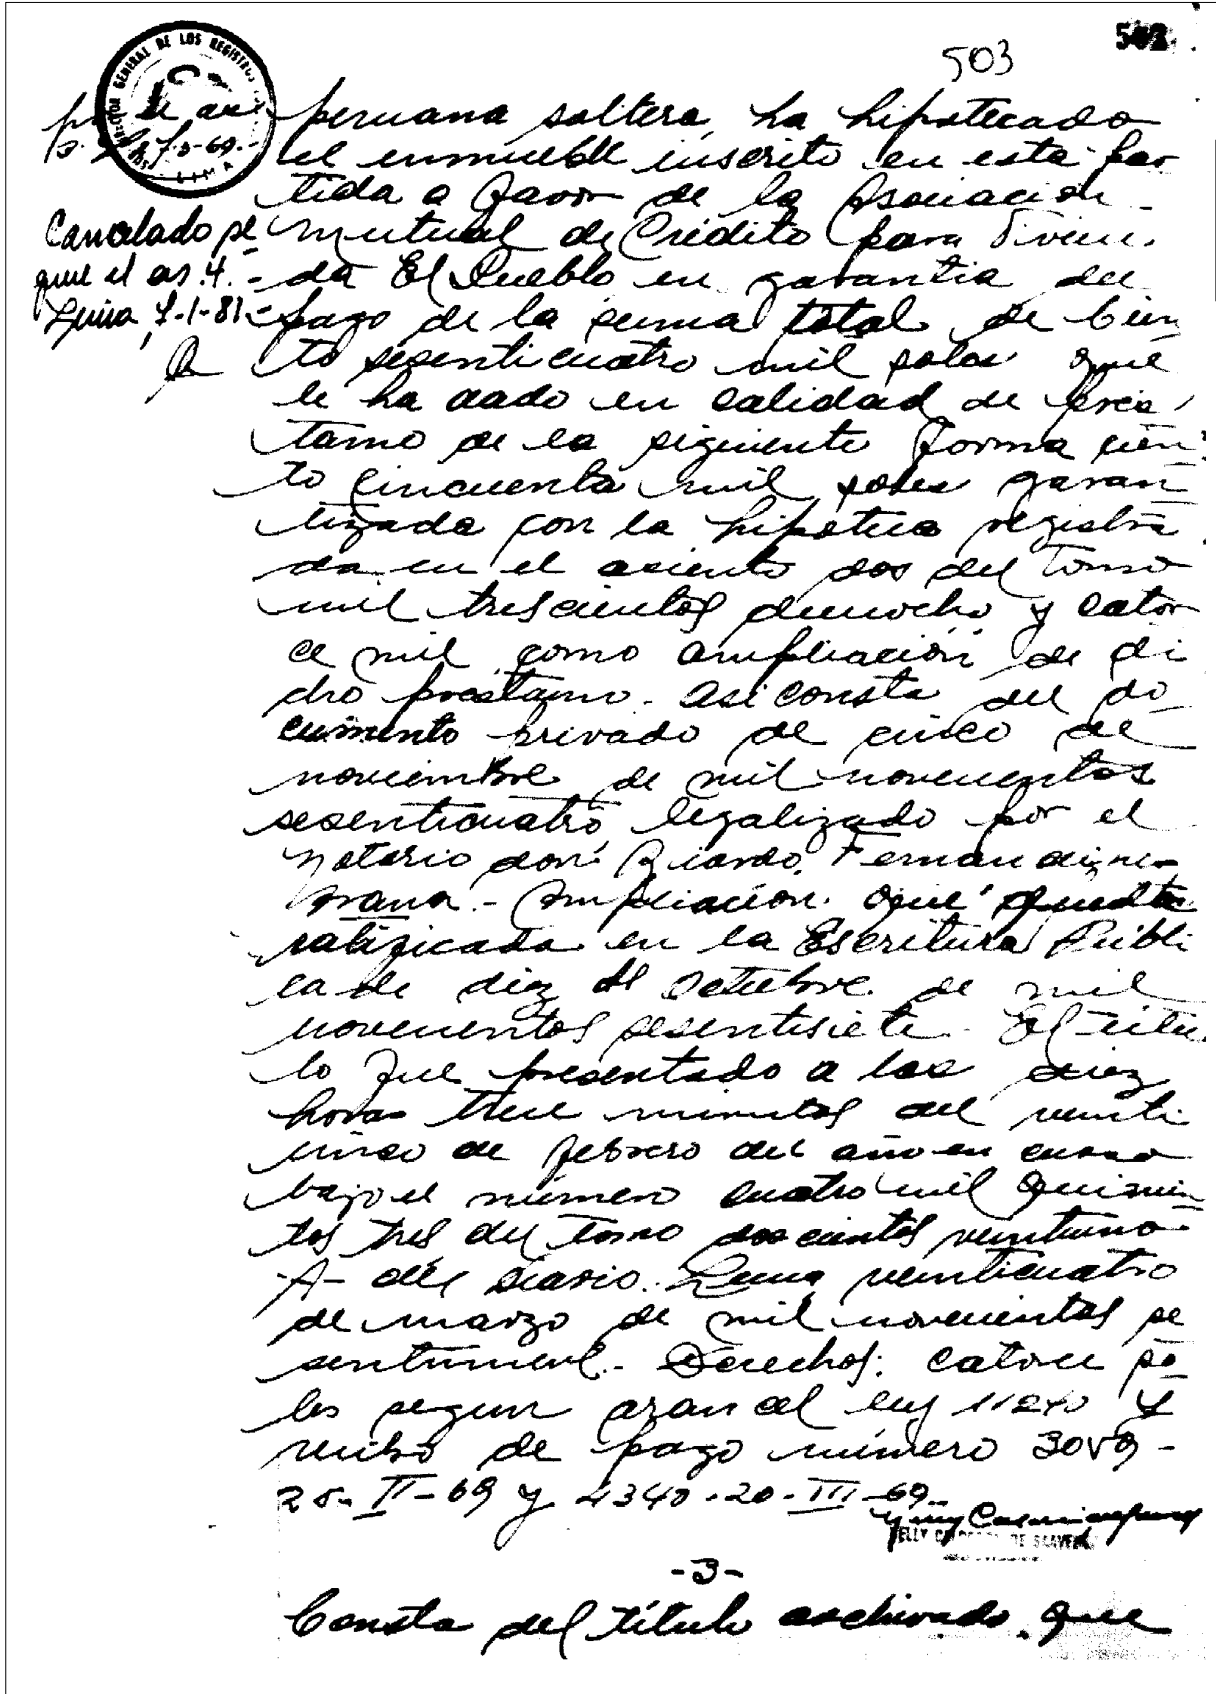 502
503
GENERAL DE LOS REGISTROS
LIMA
peruana soltera, ha hipotecado
el inmueble inscrito en esta par
tida a favor de la Asociación
Mutual de Crédito para Vivien
da El Pueblo en garantia del
pago de la suma total de Cien
to sesenticuatro mil soles que
le ha dado en calidad de prés
tamo de la siguiente forma cien
to cincuenta mil soles garan
tizada con la hipoteca registra
da en el asiento dos del tomo
mil trescientos dieciocho y cator
ce mil como ampliación de di
cho préstamo. Asi consta del do
cumento privado de cinco de
noviembre de mil novecientos
sesenticuatro legalizado por el
Notario don Ricardo Fernandini
Arana.- Ampliación que queda
ratificada en la Escritura Públi
ca de diez de octubre de mil
novecientos sesentisiete. El títu
lo fue presentado a las diez
horas trece minutos del veinti
cinco de febrero del año en curso
bajo el número cuatro mil quinien
tos tres del tomo doscientos veintiuno
-A- del diario. Lima veinticuatro
de marzo de mil novecientos se
sentinueve.- Derechos: catorce so
les segun arancel ley 11240 y
recibo de pago número 3059-
25-II-69 y 4340-20-III-69.-
Cancelado se
gun el as. 4.-
Lima, 7-1-81-
-3-
Consta del título archivado que